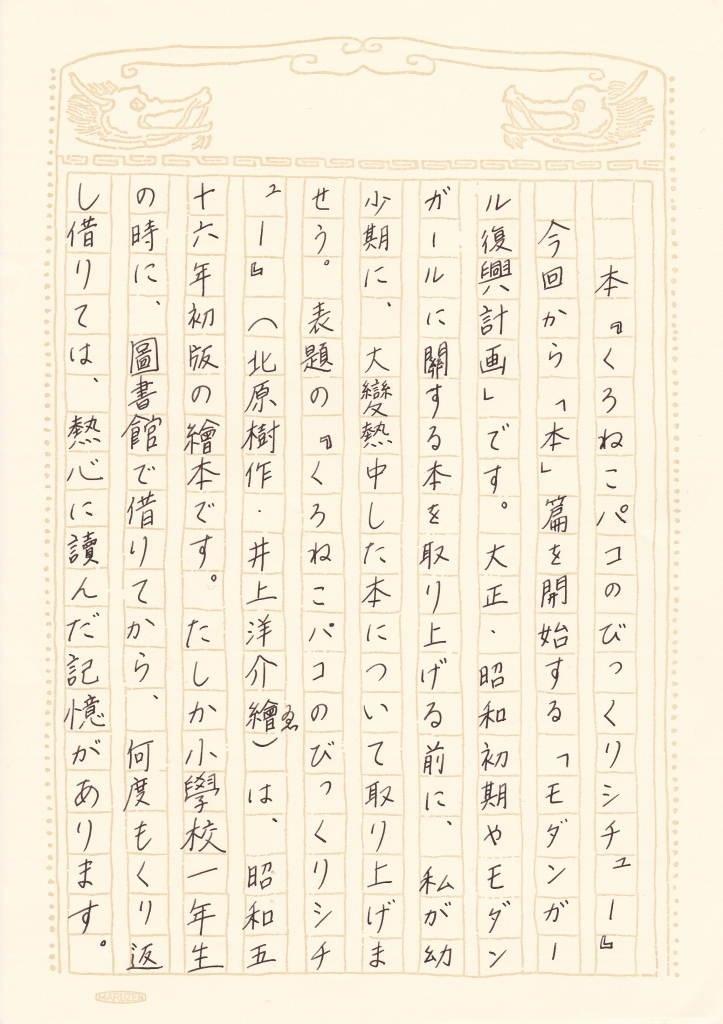 本『くろねこパコのびっくりシチュー』
今回から「本」篇を開始する「モダンガー
ル復興計画」です。大正・昭和初期やモダン
ガールに關する本を取り上げる前に、私が幼
少期に、大變熱中した本について取り上げま
せう。表題の『くろねこパコのびっくりシチ
ュー』（北原樹作・井上洋介繪ゑ）は、昭和五
十六年初版の繪本です。たしか小學校一年生
の時に、圖書館で借りてから、何度もくり返
し借りては、熱心に讀んだ記憶があります。
MARUZEN